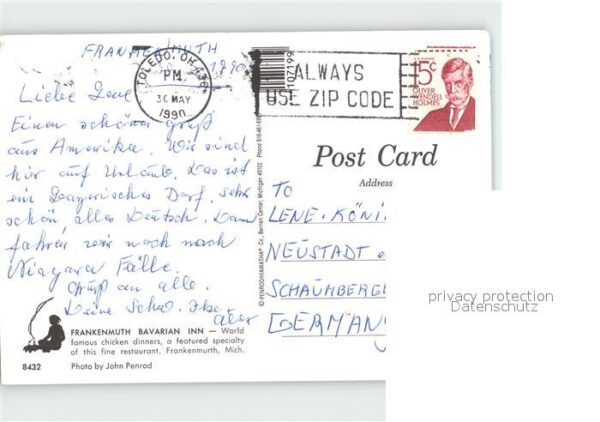 FRANKENMUTH
1990
Liebe Lene
Einen schönen gruß
aus Amerika. Wir sind
hier auf Urlaub. Das ist
ein Bayerisches Dorf. sehr
schön, alles Deutsch. Dann
fahren wir noch nach
Niagara Fälle.
Gruß an alle.
Deine Schw.
FRANKENMUTH BAVARIAN INN — World
famous chicken dinners, a featured specialty
of this fine restaurant, Frankenmuth, Mich.
8432 Photo by John Penrod
TOLEDO, OH 436
PM
30 MAY
1990
107199
ALWAYS
USE ZIP CODE
15c
OLIVER
WENDELL
HOLMES
Post Card
Address
TO
LENE. KÖNI
NEUSTADT
SCHAUMBERGE
GERMANY
privacy protection
Datenschutz